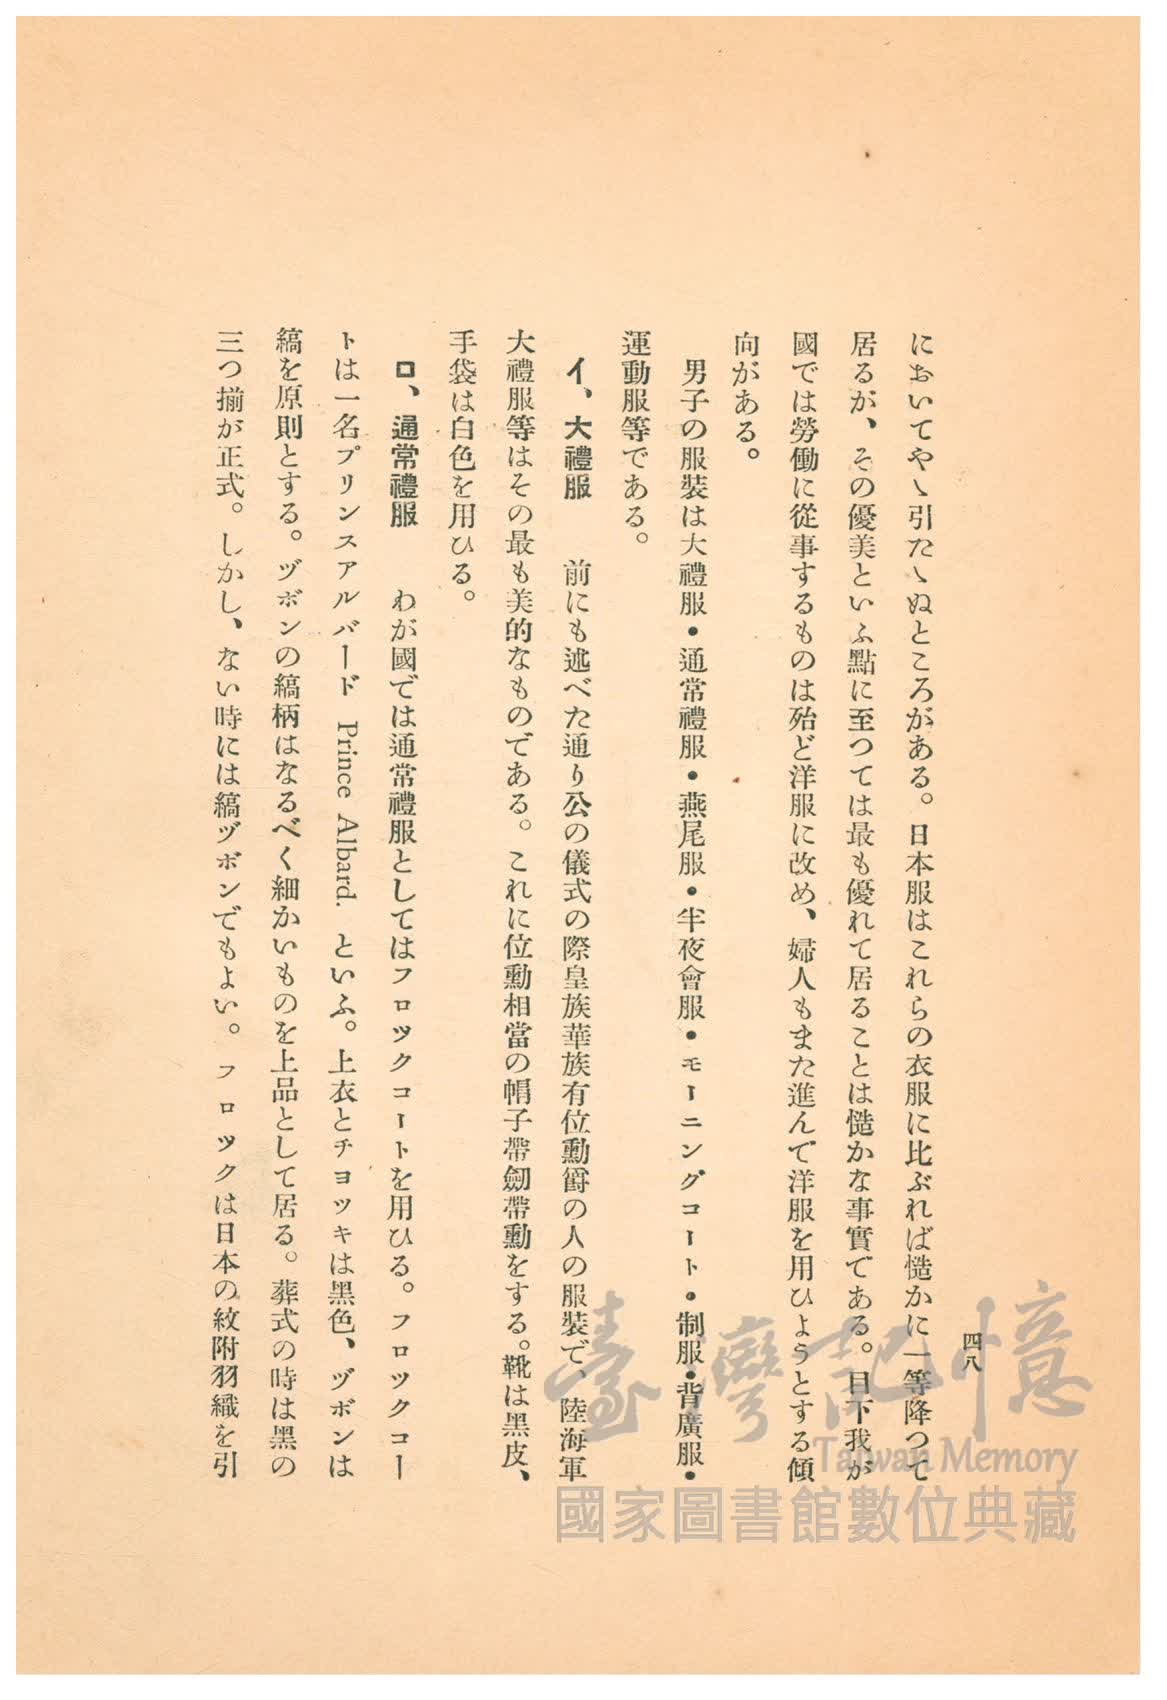 四八
においてやゝ引たゝぬところがある。日本服はこれらの衣服に比ぶれば慥かに一等降つて
居るが、その優美といふ點に至つては最も優れて居ることは慥かな事實である。目下我が
國では勞働に從事するものは殆ど洋服に改め、婦人もまた進んで洋服を用ひようとする傾
向がある。
男子の服裝は大禮服・通常禮服・燕尾服・半夜會服・モーニングコート・制服・背廣服・
運動服等である。
イ、大禮服　前にも述べた通り公の儀式の際皇族華族有位勳爵の人の服裝で、陸海軍
大禮服等はその最も美的なものである。これに位勳相當の帽子帶劍帶勳をする。靴は黑皮、
手袋は白色を用ひる。
ロ、通常禮服　わが國では通常禮服としてはフロックコートを用ひる。フロツクコー
トは一名プリンスアルバード Prince Albard. といふ。上衣とチヨツキは黑色、ヅボンは
縞を原則とする。ヅボンの縞柄はなるべく細かいものを上品として居る。葬式の時は黑の
三つ揃が正式。しかし、ない時には縞ヅボンでもよい。フロックは日本の紋附羽織を引
臺灣記憶
Taiwan Memory
國家圖書館數位典藏